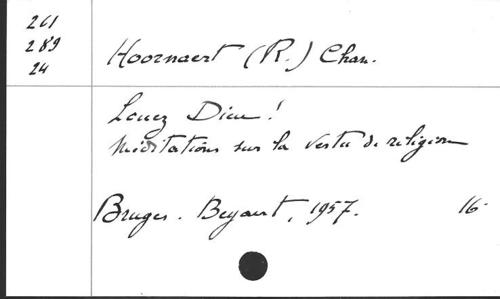 261
289
24
Hoornaert (R.) Chan.
Louez Dieu!
Méditations sur la vertu de religion
Bruges. Beyaert, 1957. 16